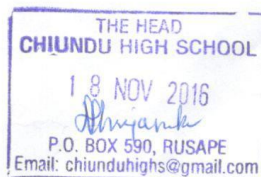 THE HEAD
CHIUNDU HIGH SCHOOL
18 NOV 2016
P.O. BOX 590, RUSAPE
Email: chiunduhighs@gmail.com